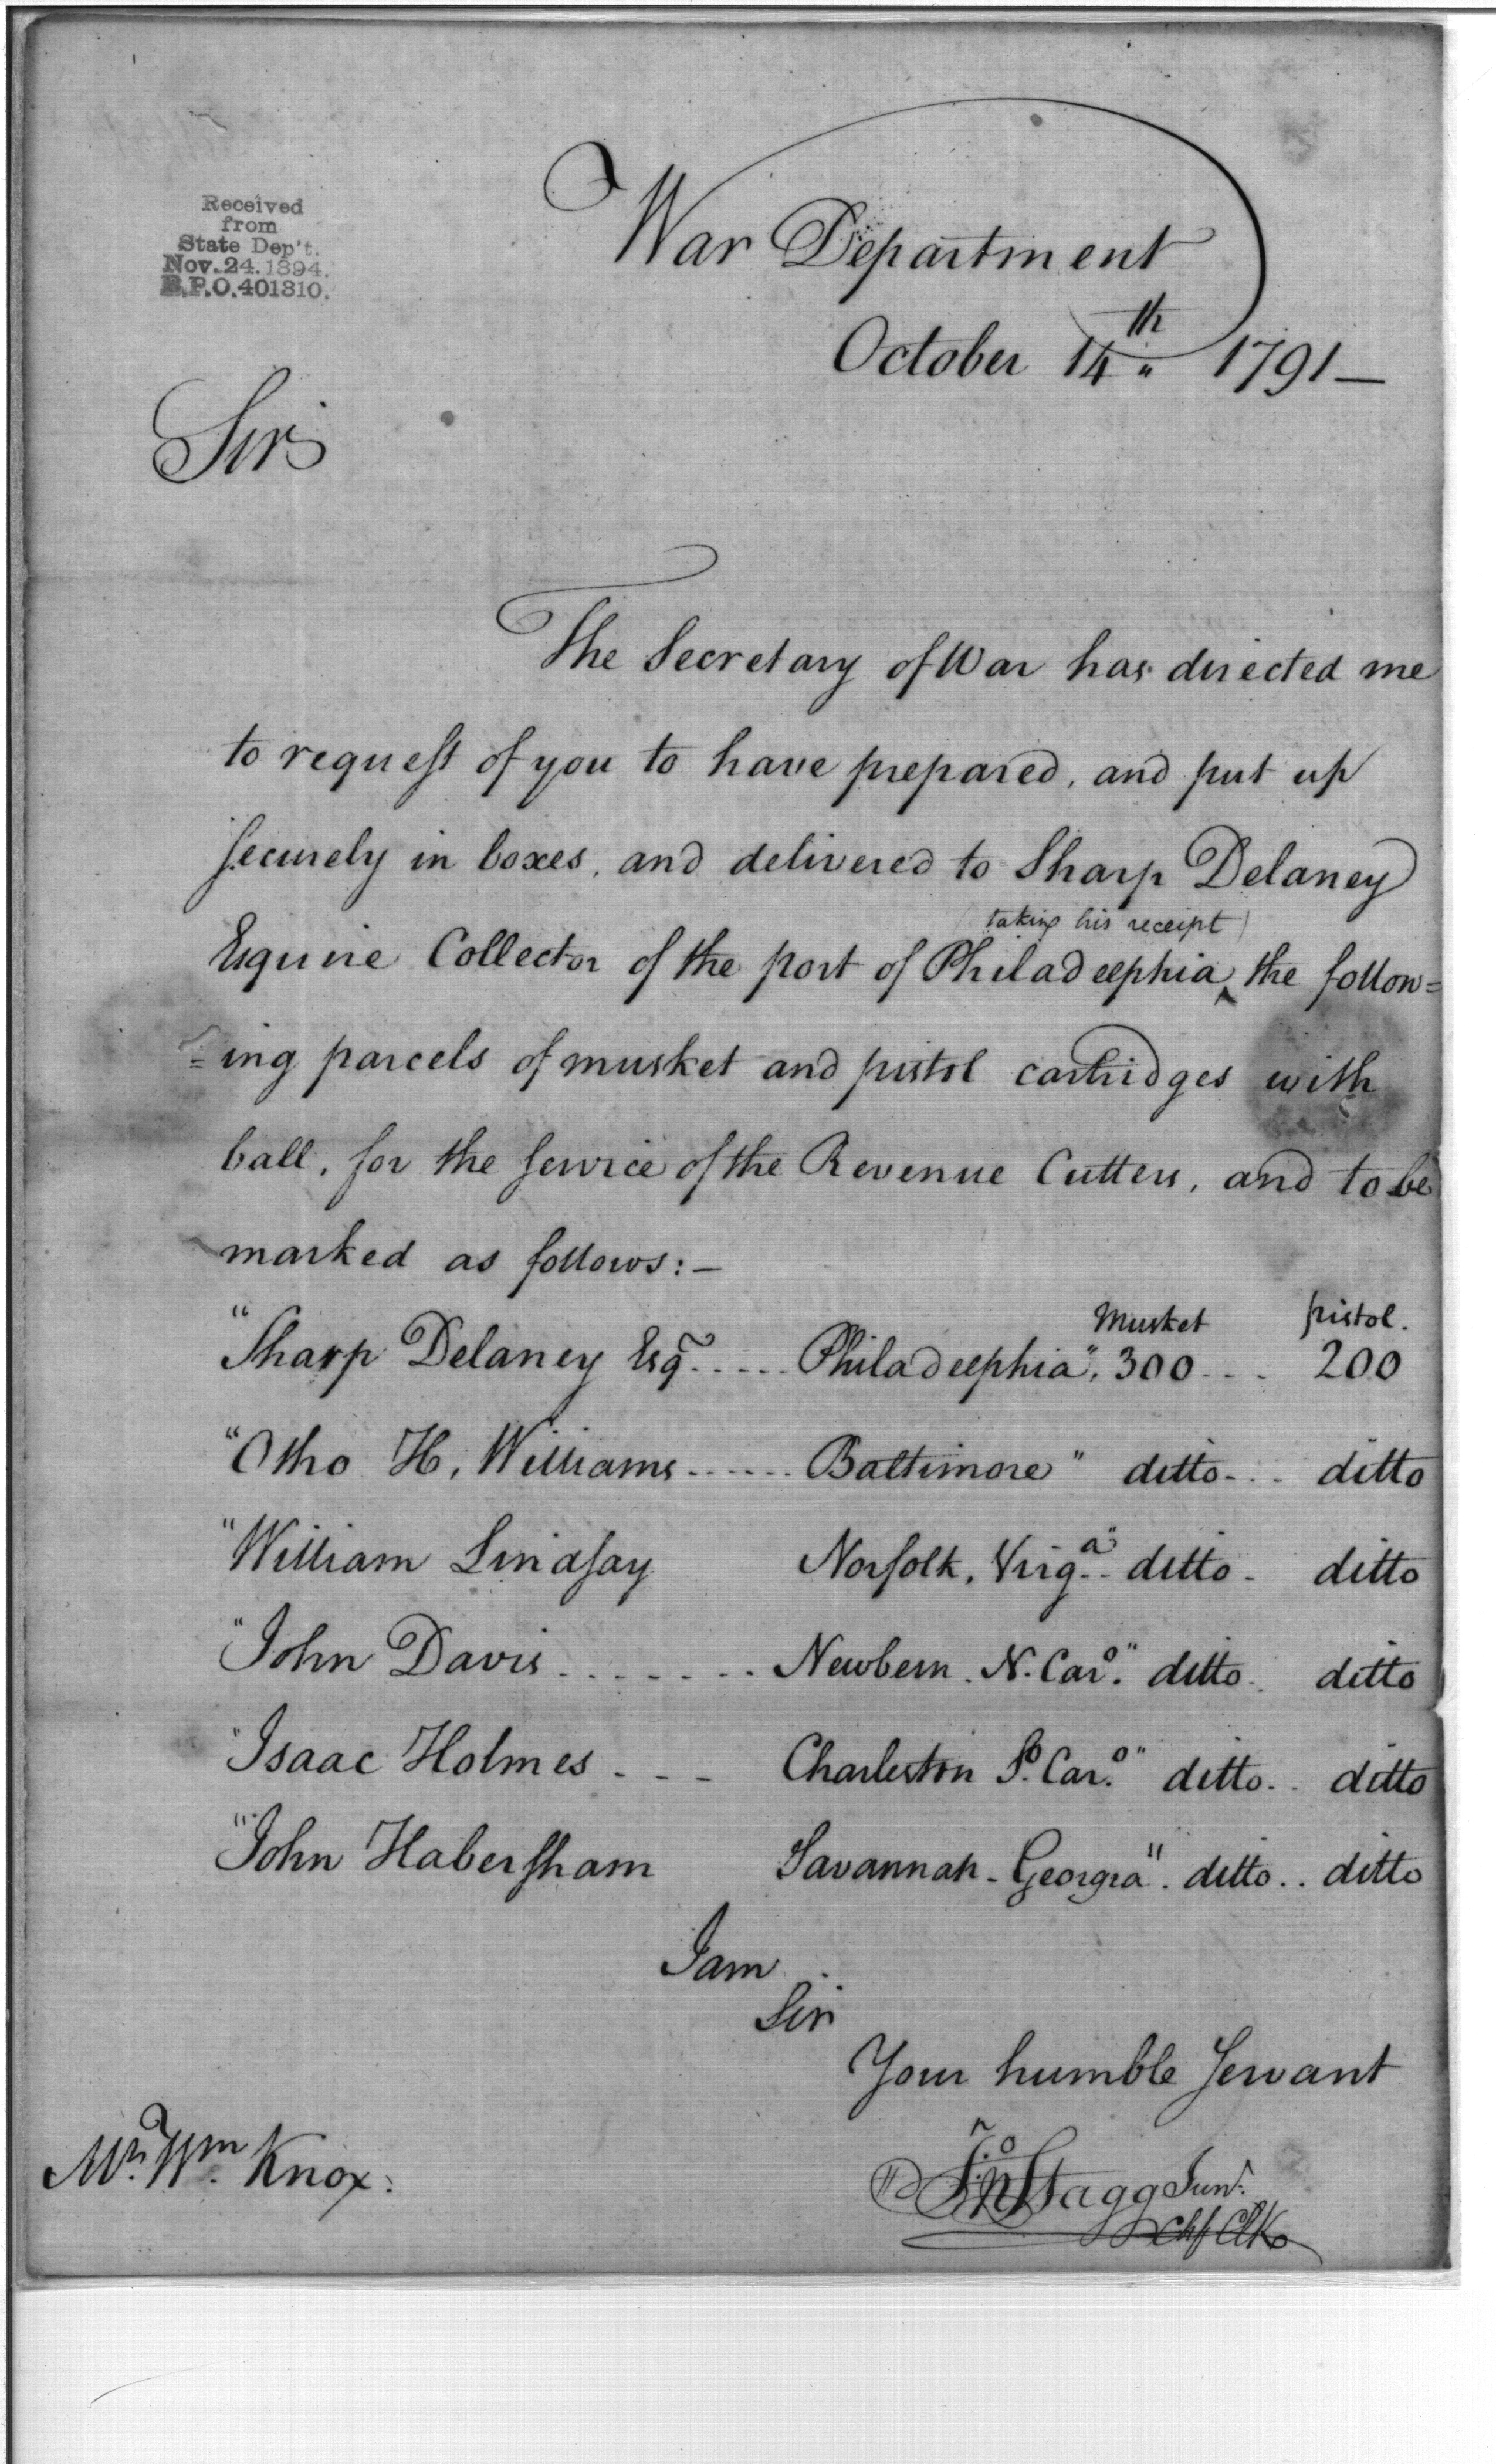 Received
from
State Dep't.
Nov. 24. 1894.
R.P.O. 401310.
War Department
October 14th 1791 —
Sir
The Secretary of War has directed me
to request of you to have prepared, and put up
securely in boxes, and delivered to Sharp Delaney
(taking his receipt)
Esquire Collector of the port of Philadelphia ‸ the follow=
=ing parcels of musket and pistol cartridges with
ball, for the service of the Revenue Cutters, and to be
marked as follows:—
Musket pistol.
"Sharp Delaney Esqr. ..... Philadelphia", 300 ... 200
"Otho H. Williams ...... Baltimore" ditto ... ditto
"William Lindsay Norfolk, Virga." ditto - ditto
"John Davis ....... Newbern. N. Caro." ditto .. ditto
"Isaac Holmes - - - Charleston So. Caro." ditto .. ditto
"John Habersham Savannah - Georgia". ditto .. ditto
I am
Sir
Your humble Servant
Jno Stagg Junr.
Chf Clk
Mr. Wm. Knox.